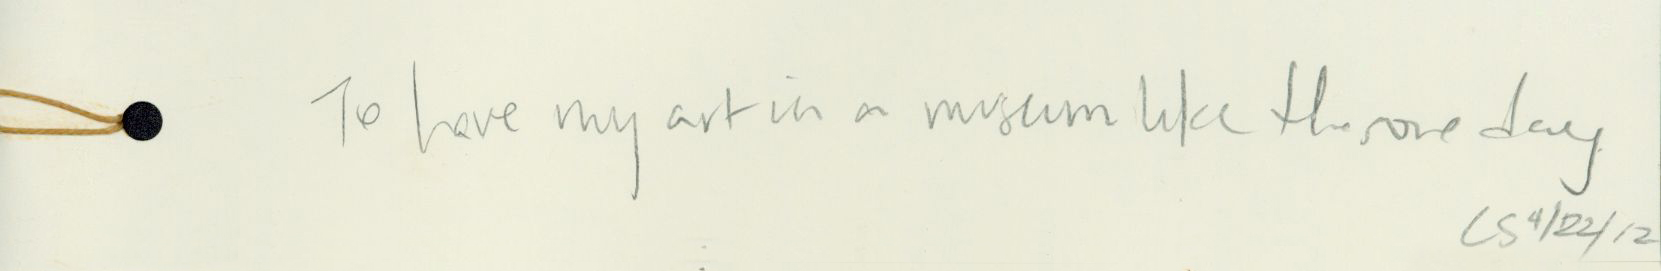 To have my art in a museum like this one day
CS 4/22/12